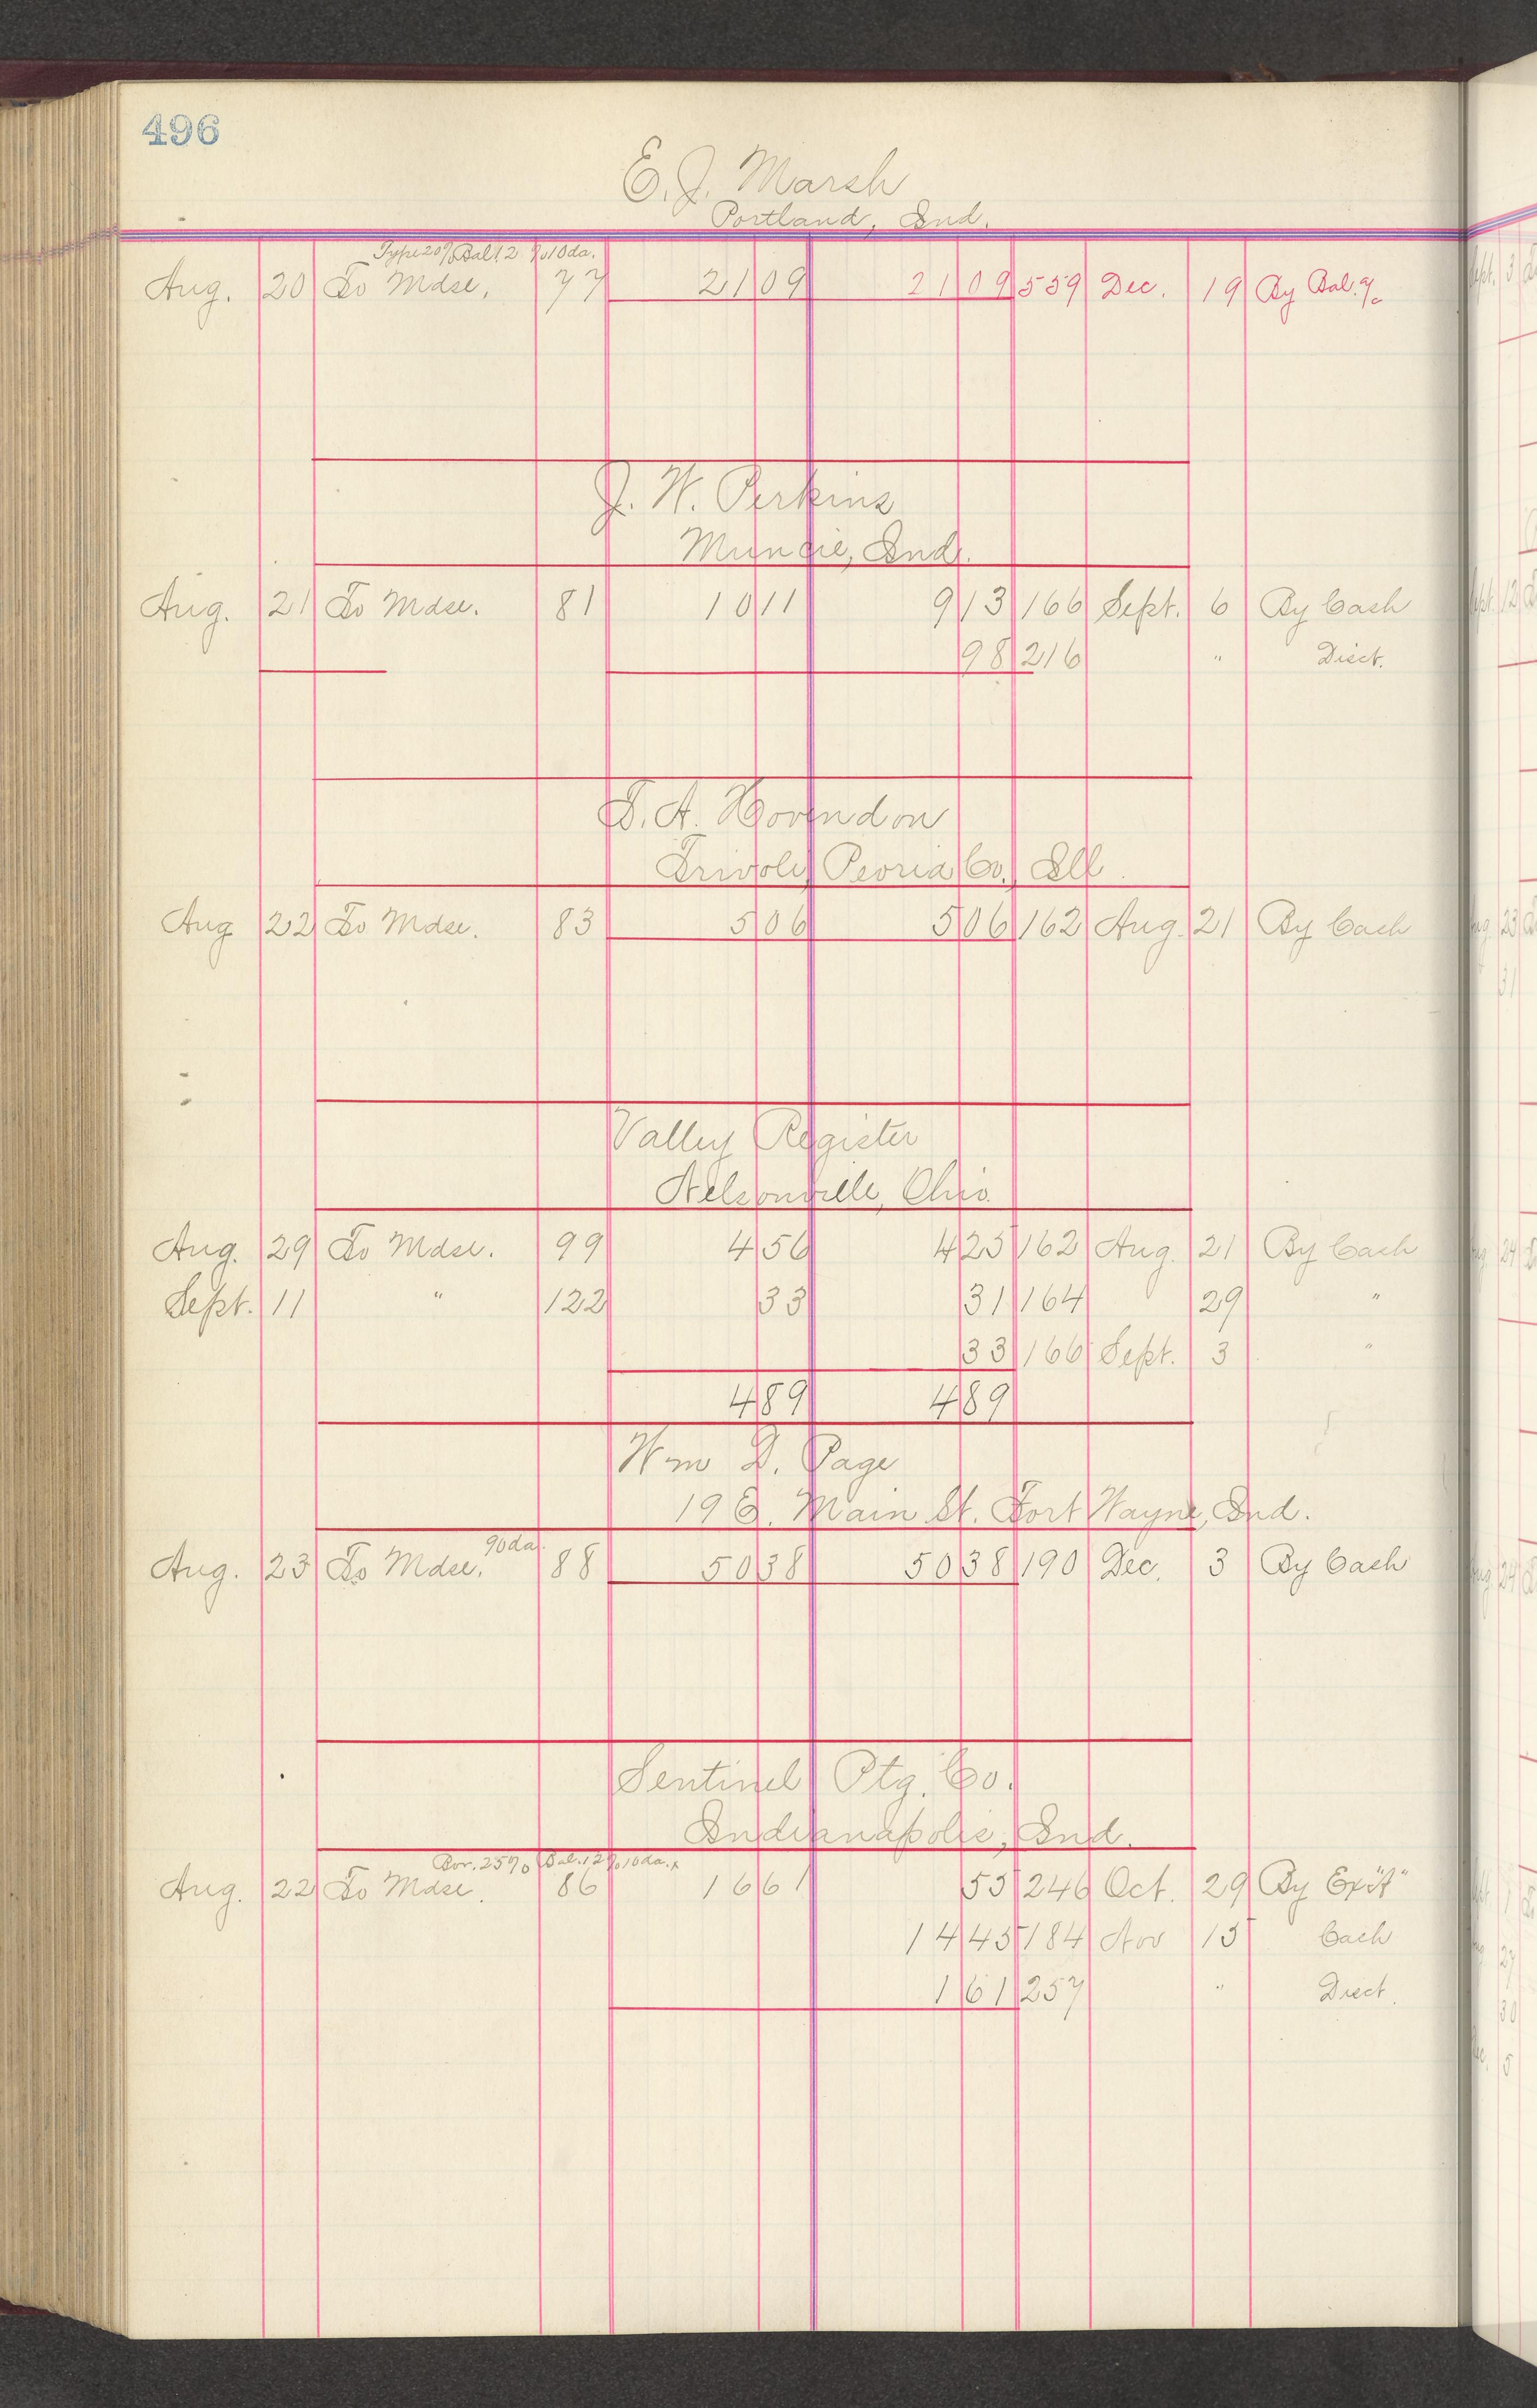 496
E. J. Marsh
Portland, Ind.
Type 20% Bal. 12 % 10 da.
Aug. 20 To Mdse. 77 21 09 21 09 559 Dec. 19 By Bal. a/c
J. W. Perkins
Muncie, Ind.
Aug. 21 To Mdse. 81 10 11 9 13 166 Sept. 6 By Cash
98 216 " Disct.
T. A. Hovendon
Trivoli, Peoria Co., Ill.
Aug 22 To Mdse. 83 5 06 5 06 162 Aug. 21 By Cash
Valley Register
Nelsonville, Ohio
Aug. 29 To Mdse. 99 4 56 4 25 162 Aug. 21 By Cash
Sept. 11 " 122 33 31 164 29 "
33 166 Sept. 3 "
4 89 4 89
Wm D. Page
19 E. Main St. Fort Wayne, Ind.
90 da.
Aug. 23 To Mdse. 88 50 38 50 38 190 Dec. 3 By Cash
Sentinel Ptg. Co.
Indianapolis, Ind.
Bor. 25% Bal. 12 % 10 da.
Aug. 22 To Mdse. 86 16 61 55 246 Oct. 29 By Ex "A"
14 45 184 Nov 15 Cash
1 61 257 " Disct.